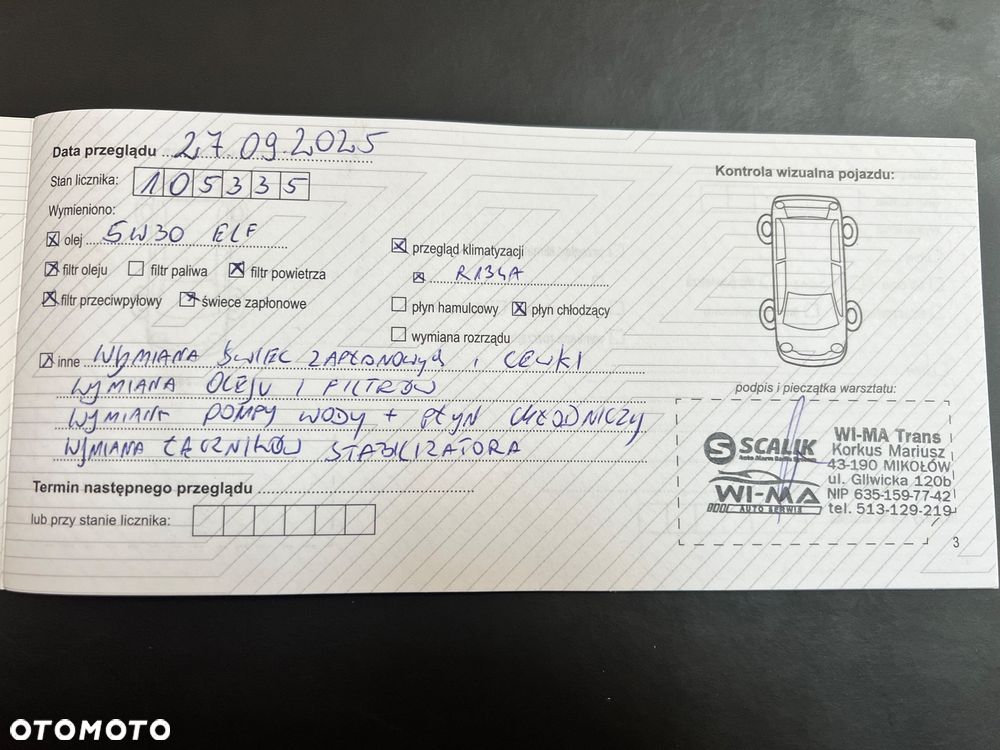 Data przeglądu 27.09.2025
Stan licznika: 105335
Wymieniono:
olej 5W30 ELF
filtr oleju filtr paliwa filtr powietrza
filtr przeciwpyłowy świece zapłonowe
przegląd klimatyzacji
R134A
płyn hamulcowy płyn chłodzący
wymiana rozrządu
inne WYMIANA ŚWIEC ZAPŁONOWYCH i CEWKI
WYMIANA OLEJU I FILTRÓW
WYMIANA POMPY WODY + PŁYN CHŁODNICZY
WYMIANA ŁĄCZNIKÓW STABILIZATORA
Termin następnego przeglądu
lub przy stanie licznika:
Kontrola wizualna pojazdu:
podpis i pieczątka warsztatu:
SCALIK
WI-MA
AUTO SERWIS
WI-MA Trans
Korkus Mariusz
43-190 MIKOŁÓW
ul. Gliwicka 120b
NIP 635-159-77-42
tel. 513-129-219
3
OTOMOTO